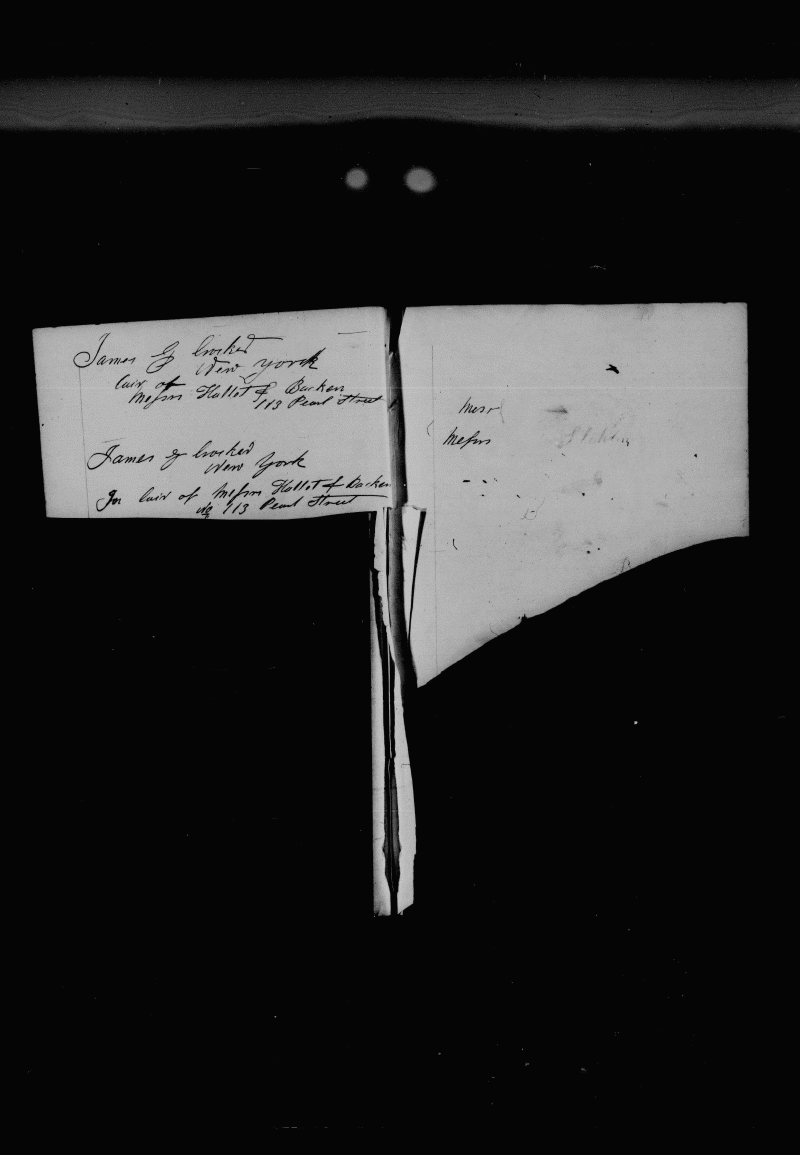 James G Crocked
New York
Cair of
Messrs Hallot & Backen
113 Pearl Street
James G Crocked
New York
In Cair of Messrs Hallot & Backen
No 113 Pearl Street
Messr
Messrs